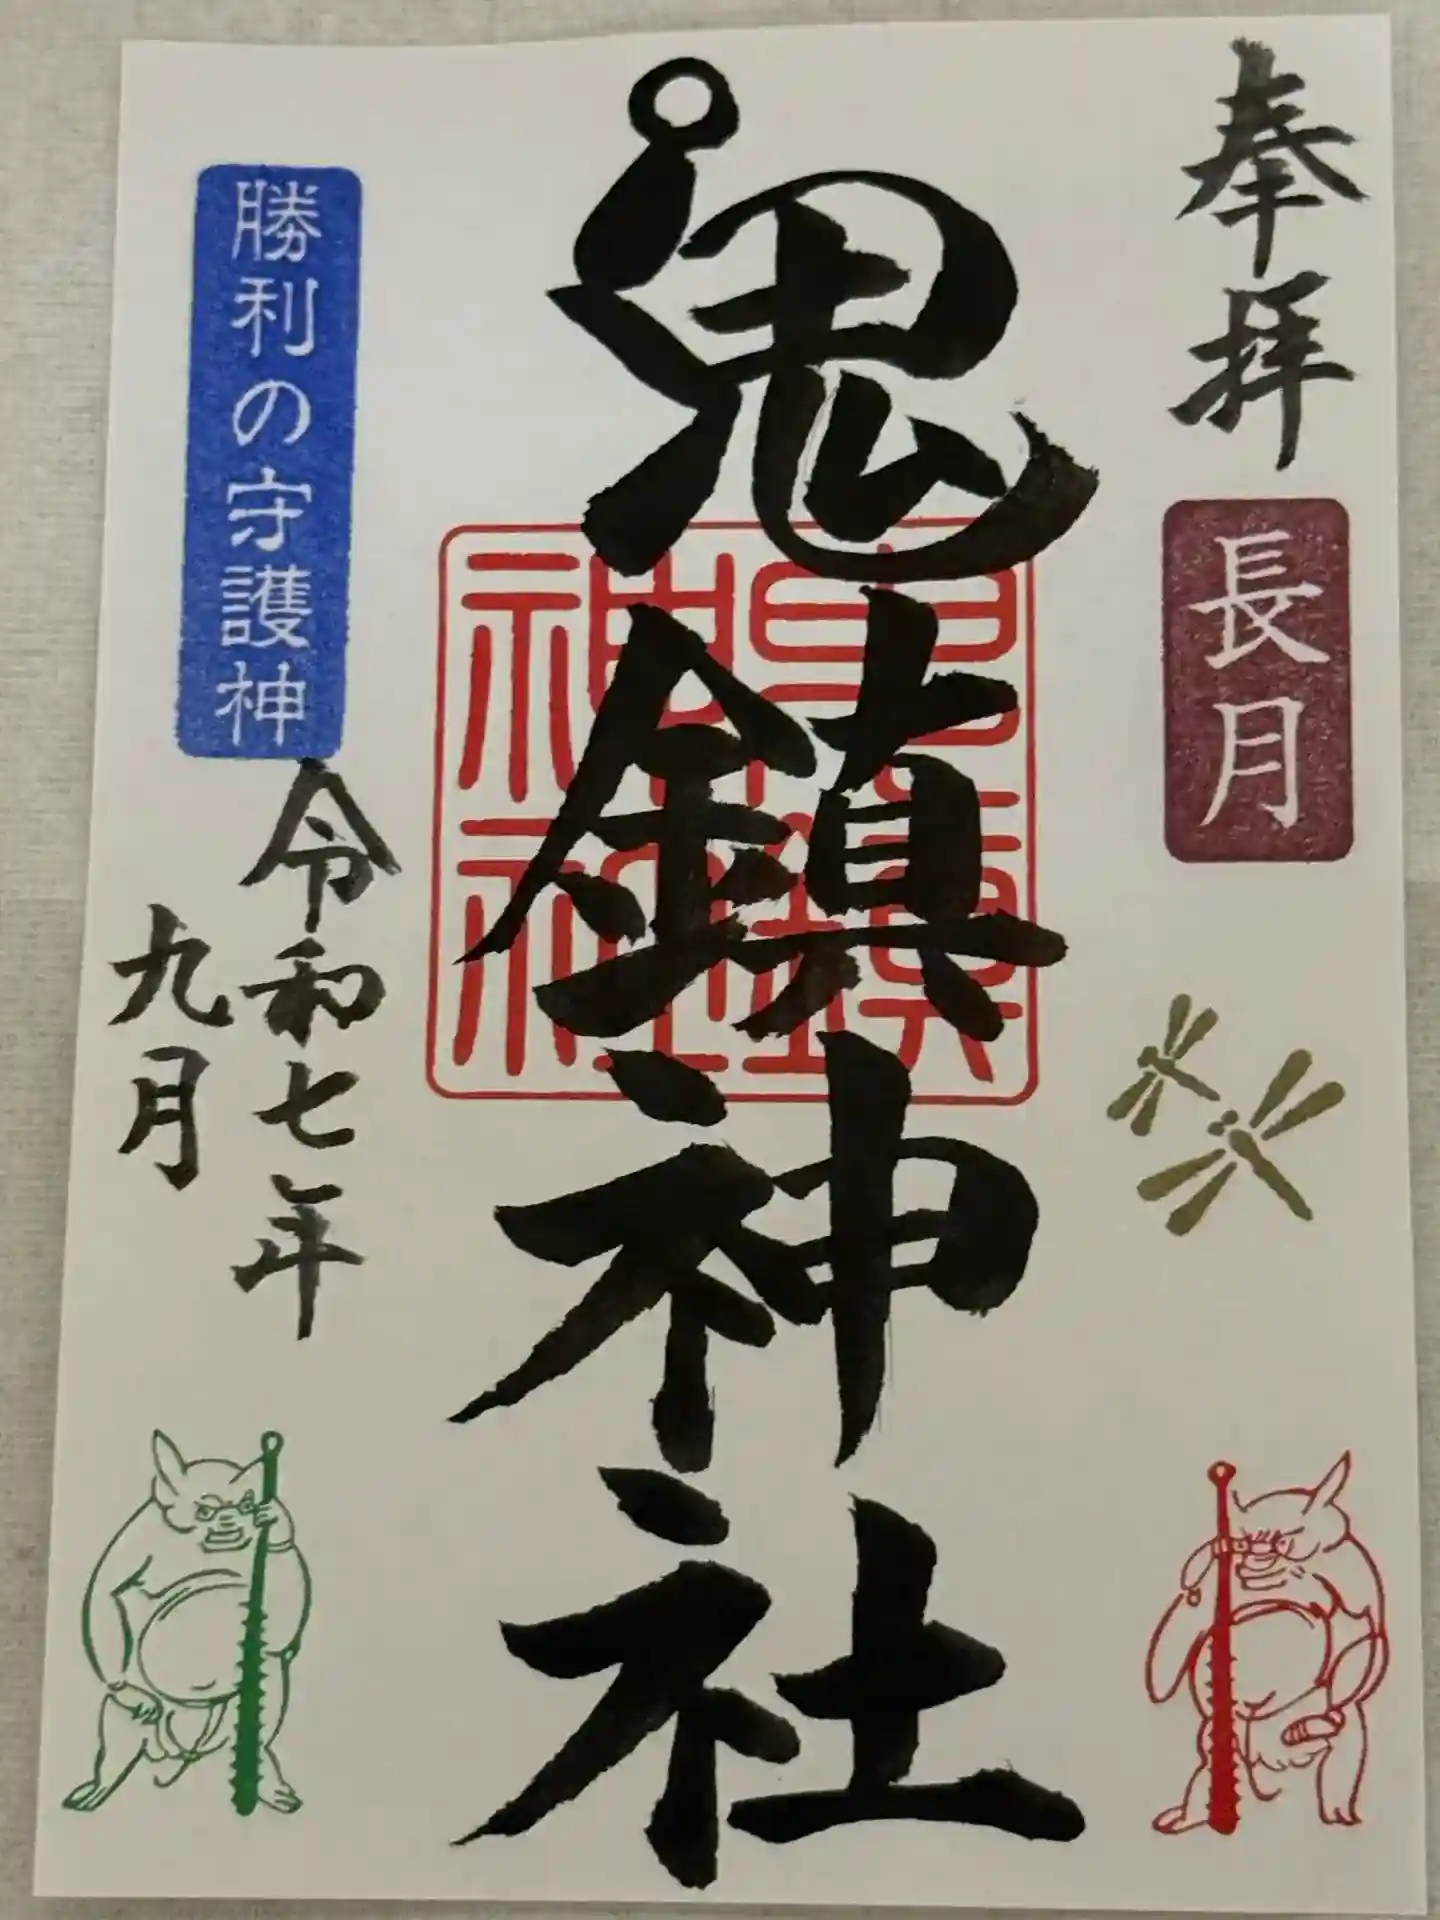 奉拝
長月
鬼鎮神社
鬼鎮神社
勝利の守護神
令和七年
九月